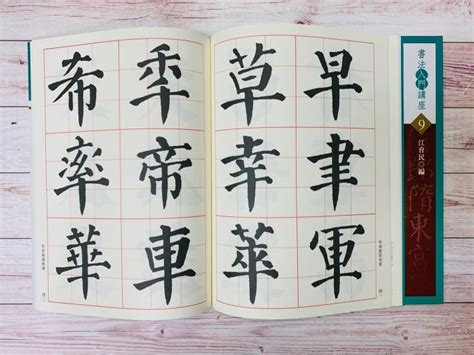 書法入門講座
9
江育民◎編
隋東宮
早聿軍
草幸
季帝車
希率華